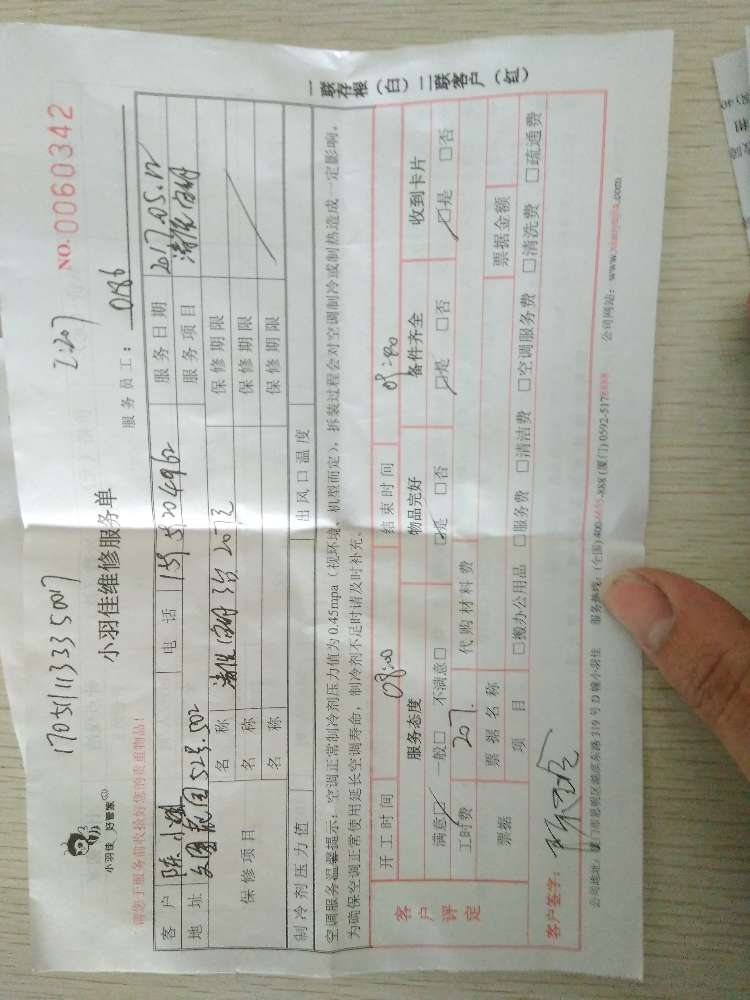 170511133350017
2:207
NO.0060342
小羽佳 好管家
小羽佳维修服务单
服务员工：0186
请您于服务前收拾好您的贵重物品！
客户 陈小 电话 服务日期 2017.05.12
地址 服务项目 清洗内机
保修项目 名称 清洗内机 207元 保修期限
名称 保修期限
名称 保修期限
制冷剂压力值 出风口温度
空调服务温馨提示：空调正常制冷剂压力值为0.45mpa（视环境、机型而定），拆装过程会对空调制冷或制热造成一定影响，
为确保空调正常使用延长空调寿命，制冷剂不足时请及时补充。
开工时间 08:00 结束时间
客户评定 服务态度 物品完好 备件齐全 收到卡片
满意□ 一般□ 不满意□ □是 □否 □是 □否 □是 □否
工时费 207. 代购材料费
票据 票据名称 票据金额
项目 □搬办公用品 □服务费 □清洁费 □空调服务费 □清洗费 □疏通费
客户签字：
公司地址：厦门市思明区湖滨东路319号D幢小羽佳 服务热线：(全国)400-6655-888 (厦门)0592-5178888 公司网站：www.xiaoyujia.com
一联存根（白）二联客户（红）